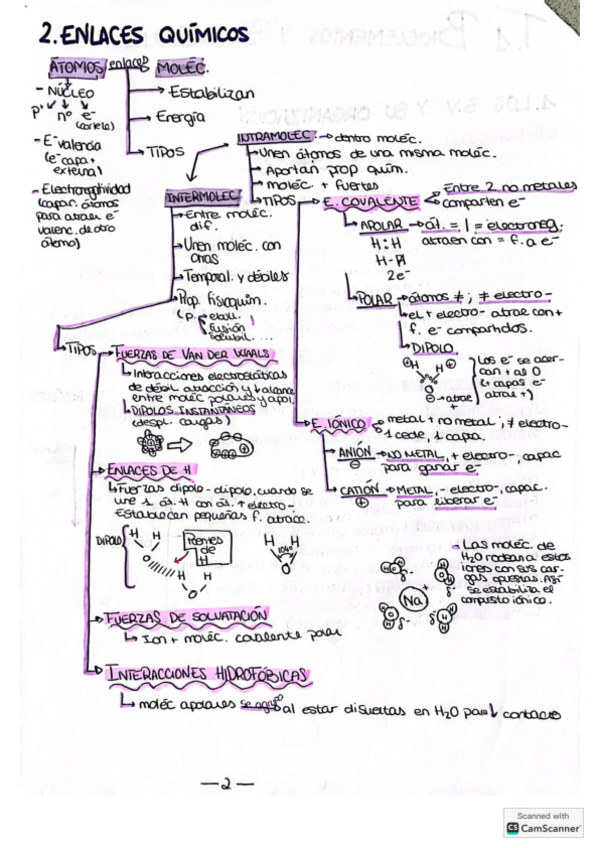 2. ENLACES QUÍMICOS
ÁTOMOS enlaces MOLÉC.
- NÚCLEO
p+ nº e-
(corteza)
- E- valencia
(e- capa +
externa)
- Electronegatividad
(capac. átomos
para atraer e-
valenc. de otro
átomo)
→ Estabilizan
→ Energía
→ TIPOS
INTRAMOLEC. → dentro moléc.
→ Unen átomos de una misma moléc.
→ Aportan prop quím.
→ moléc. + fuertes
→ TIPOS → E. COVALENTE
Entre 2 no metales
comparten e-
→ APOLAR → át. = | = electroneg;
atraen con = f. a e-
H : H
H - H
2e-
→ POLAR → átomos ≠ ; ≠ electro-
→ el + electro- atrae con +
f. e- compartidos.
→ DIPOLO
H H
O
⊖ → atrae
+
Los e- se acer-
can + as O
(+ capas e-
atrae +)
→ E. IÓNICO → metal + no metal ; ≠ electro-
1 cede, 1 capta.
→ ANIÓN → NO METAL, + electro-, capac
⊖ para ganar e-
→ CATIÓN → METAL, - electro-, capac.
⊕ para liberar e-
- Las moléc. de
H2O rodean a estos
iones con sus car-
gas opuestas. Así
se estabiliza el
compuesto iónico.
Na +
δ- δ-
INTERMOLEC
→ Entre moléc.
dif.
→ Unen moléc. con
otras
→ Temporal. y débiles
→ Prop. fisicoquím.
(p. → ebull.
→ fusión
→ solubil....
→ TIPOS → FUERZAS DE VAN DER WAALS
→ Interacciones electrostáticas
de débil atracción y ↓ alcance
entre moléc polares y apol.
→ DIPOLOS INSTANTÁNEOS
(despl. cargas)
→ ENLACES DE H
→ Fuerzas dipolo-dipolo, cuando se
une 1 át. H con át. + electro-
Establecen pequeñas f. atracc.
DIPOLO
H H
O
Puentes
de
H
H H
O
H H
104º
O
→ FUERZAS DE SOLVATACIÓN
→ Ion + moléc. covalente polar
→ INTERACCIONES HIDROFÓBICAS
→ moléc apolares se agrup al estar disueltas en H2O para ↓ contacto
— 2 —
Scanned with
CS CamScanner